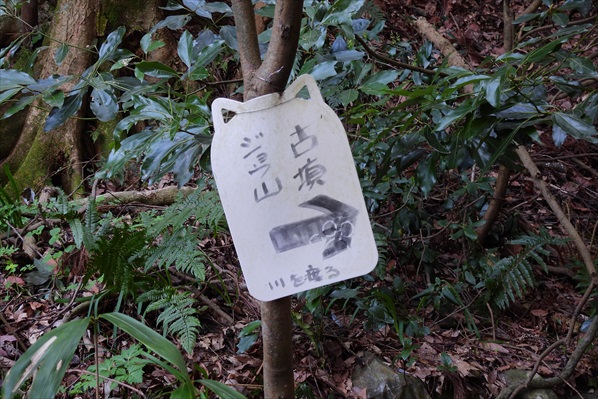 古墳
ジョウ山
川を渡る